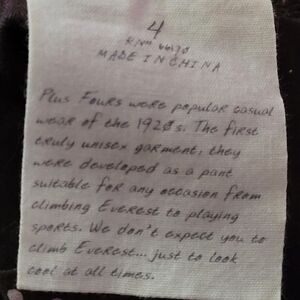 4
MADE IN CHINA
Plus Fours were popular casual
wear of the 1920s. The first
truly unisex garment, they
were developed as a pant
suitable for any occasion from
climbing Everest to playing
sports. We don't expect you to
climb Everest... just to look
cool at all times.